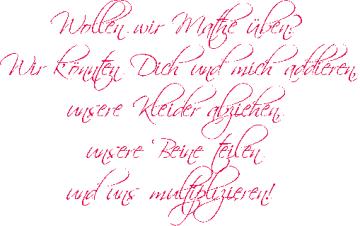 Wollen wir Mathe üben?
Wir könnten Dich und mich addieren,
unsere Kleider abziehen,
unsere Beine teilen
und uns multiplizieren!